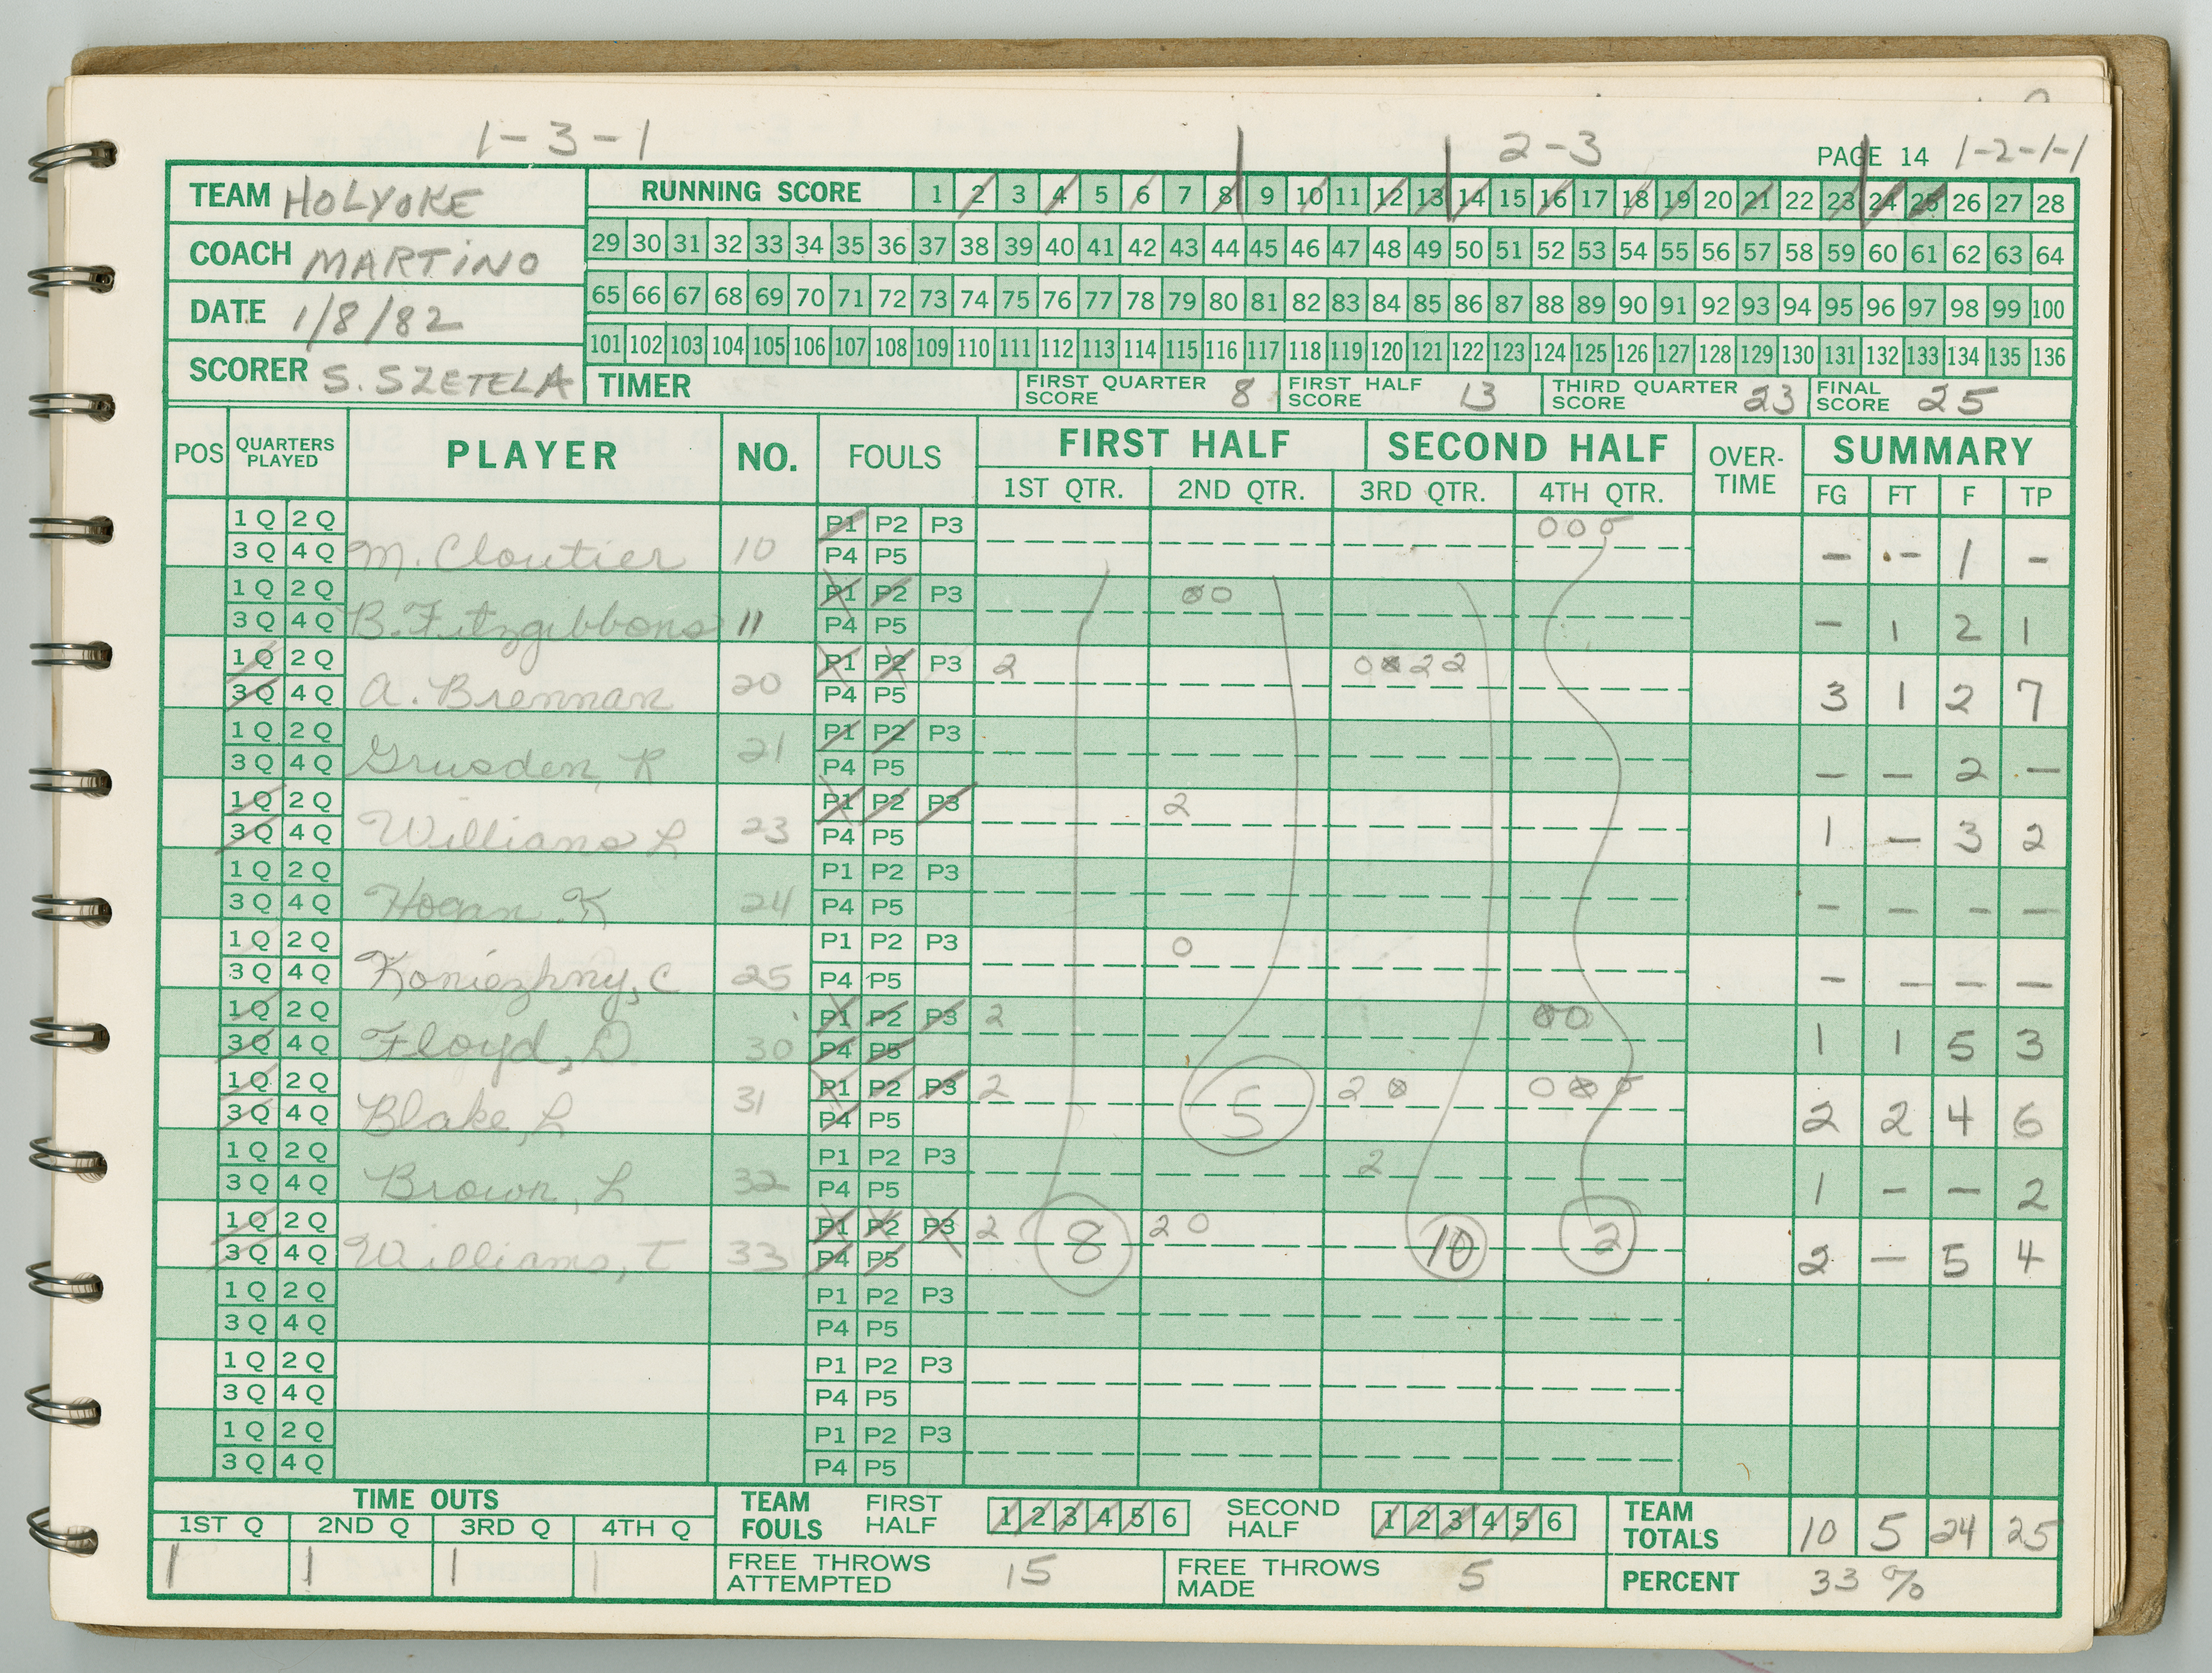 1-3-1 2-3 PAGE 14 1-2-1-1
TEAM HOLYOKE
COACH MARTINO
DATE 1/8/82
SCORER S. SZETELA
RUNNING SCORE 1 2 3 4 5 6 7 8 9 10 11 12 13 14 15 16 17 18 19 20 21 22 23 24 25 26 27 28
29 30 31 32 33 34 35 36 37 38 39 40 41 42 43 44 45 46 47 48 49 50 51 52 53 54 55 56 57 58 59 60 61 62 63 64
65 66 67 68 69 70 71 72 73 74 75 76 77 78 79 80 81 82 83 84 85 86 87 88 89 90 91 92 93 94 95 96 97 98 99 100
101 102 103 104 105 106 107 108 109 110 111 112 113 114 115 116 117 118 119 120 121 122 123 124 125 126 127 128 129 130 131 132 133 134 135 136
TIMER FIRST QUARTER SCORE 8 FIRST HALF SCORE 13 THIRD QUARTER SCORE 23 FINAL SCORE 25
POS QUARTERS PLAYED PLAYER NO. FOULS FIRST HALF SECOND HALF OVER-TIME SUMMARY
1ST QTR. 2ND QTR. 3RD QTR. 4TH QTR. FG FT F TP
1Q 2Q P1 P2 P3 0 0 0
3Q 4Q M. Cloutier 10 P4 P5 - - 1 -
1Q 2Q P1 P2 P3 0 0
3Q 4Q B. Fitzgibbons 11 P4 P5 - 1 2 1
1Q 2Q P1 P2 P3 2 0 0 2 2
3Q 4Q A. Brennan 20 P4 P5 3 1 2 7
1Q 2Q P1 P2 P3
3Q 4Q Grusden, K 21 P4 P5 - - 2 -
1Q 2Q P1 P2 P3 2
3Q 4Q Williams L 23 P4 P5 1 - 3 2
1Q 2Q P1 P2 P3
3Q 4Q Hogan K 24 P4 P5 - - - -
1Q 2Q P1 P2 P3 0
3Q 4Q Koniezhny, C 25 P4 P5 - - - -
1Q 2Q P1 P2 P3 2 0 0
3Q 4Q Floyd, D. 30 P4 P5 1 1 5 3
1Q 2Q P1 P2 P3 2 5 2 0 0 0 0
3Q 4Q Blake, L 31 P4 P5 2 2 4 6
1Q 2Q P1 P2 P3 2
3Q 4Q Brown, L 32 P4 P5 1 - - 2
1Q 2Q P1 P2 P3 2 8 2 0 10 2
3Q 4Q Williams, T 33 P4 P5 2 - 5 4
1Q 2Q P1 P2 P3
3Q 4Q P4 P5
1Q 2Q P1 P2 P3
3Q 4Q P4 P5
1Q 2Q P1 P2 P3
3Q 4Q P4 P5
TIME OUTS
1ST Q 2ND Q 3RD Q 4TH Q
1 1 1 1
TEAM FOULS FIRST HALF 1 2 3 4 5 6 SECOND HALF 1 2 3 4 5 6
TEAM TOTALS 10 5 24 25
FREE THROWS ATTEMPTED 15 FREE THROWS MADE 5
PERCENT 33 %